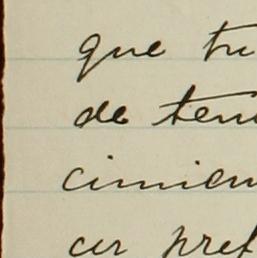 que tu
de ten
cimien
cer pref